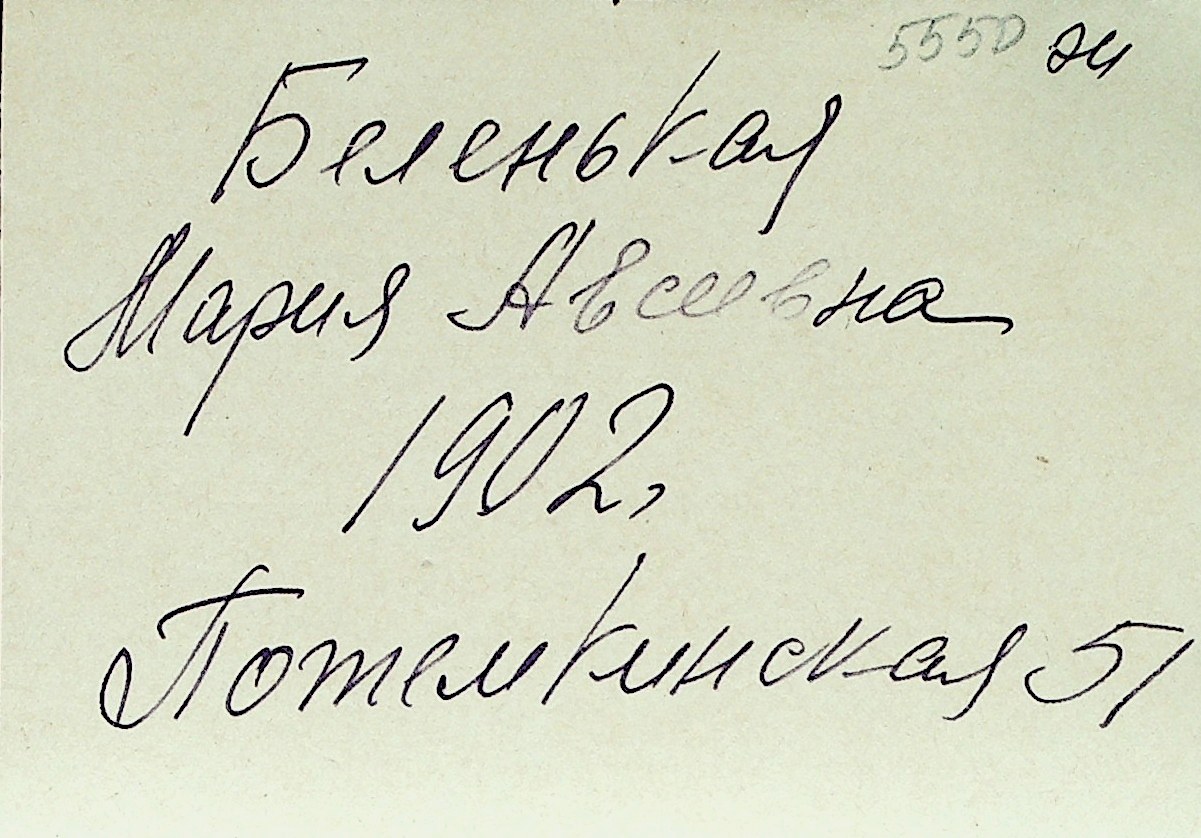 5550 ж
Беленькая
Мария Авсеевна
1902,
Потемкинская 51